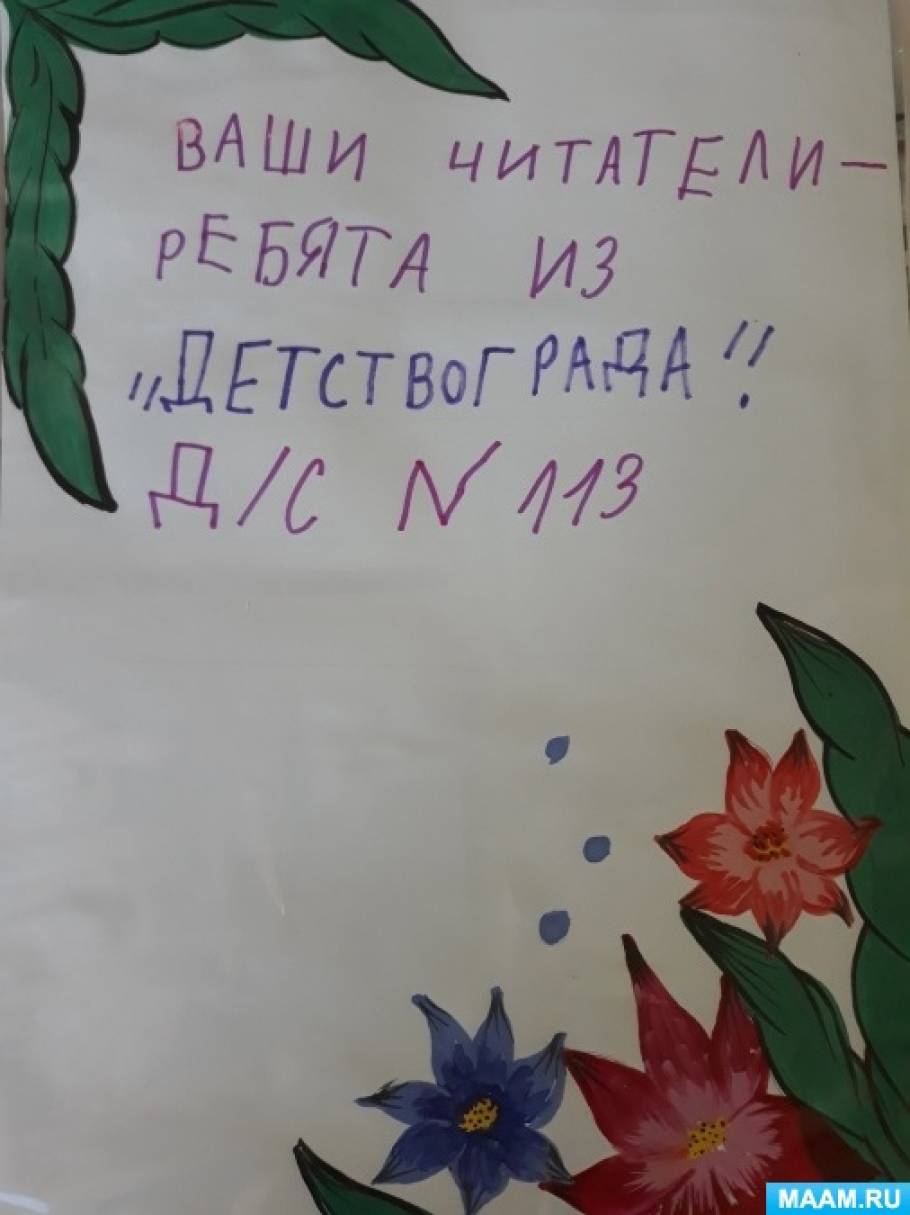 ВАШИ ЧИТАТЕЛИ –
РЕБЯТА ИЗ
„ДЕТСТВОГРАДА"!
Д/С N 113
MAAM.RU